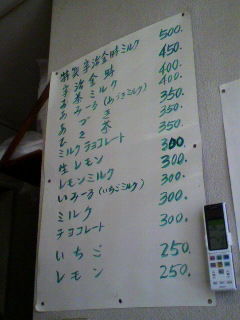 特製宇治金時ミルク 500.
宇治金時 450.
お茶ミルク 400.
あみーる(あづきミルク) 400.
あづき 350.
ひき茶 350.
ミルクチョコレート 350.
生レモン 300.
レモンミルク 300.
いみーる(いちごミルク) 300.
ミルク 300.
チョコレート 300.
いちご 250.
レモン 250.